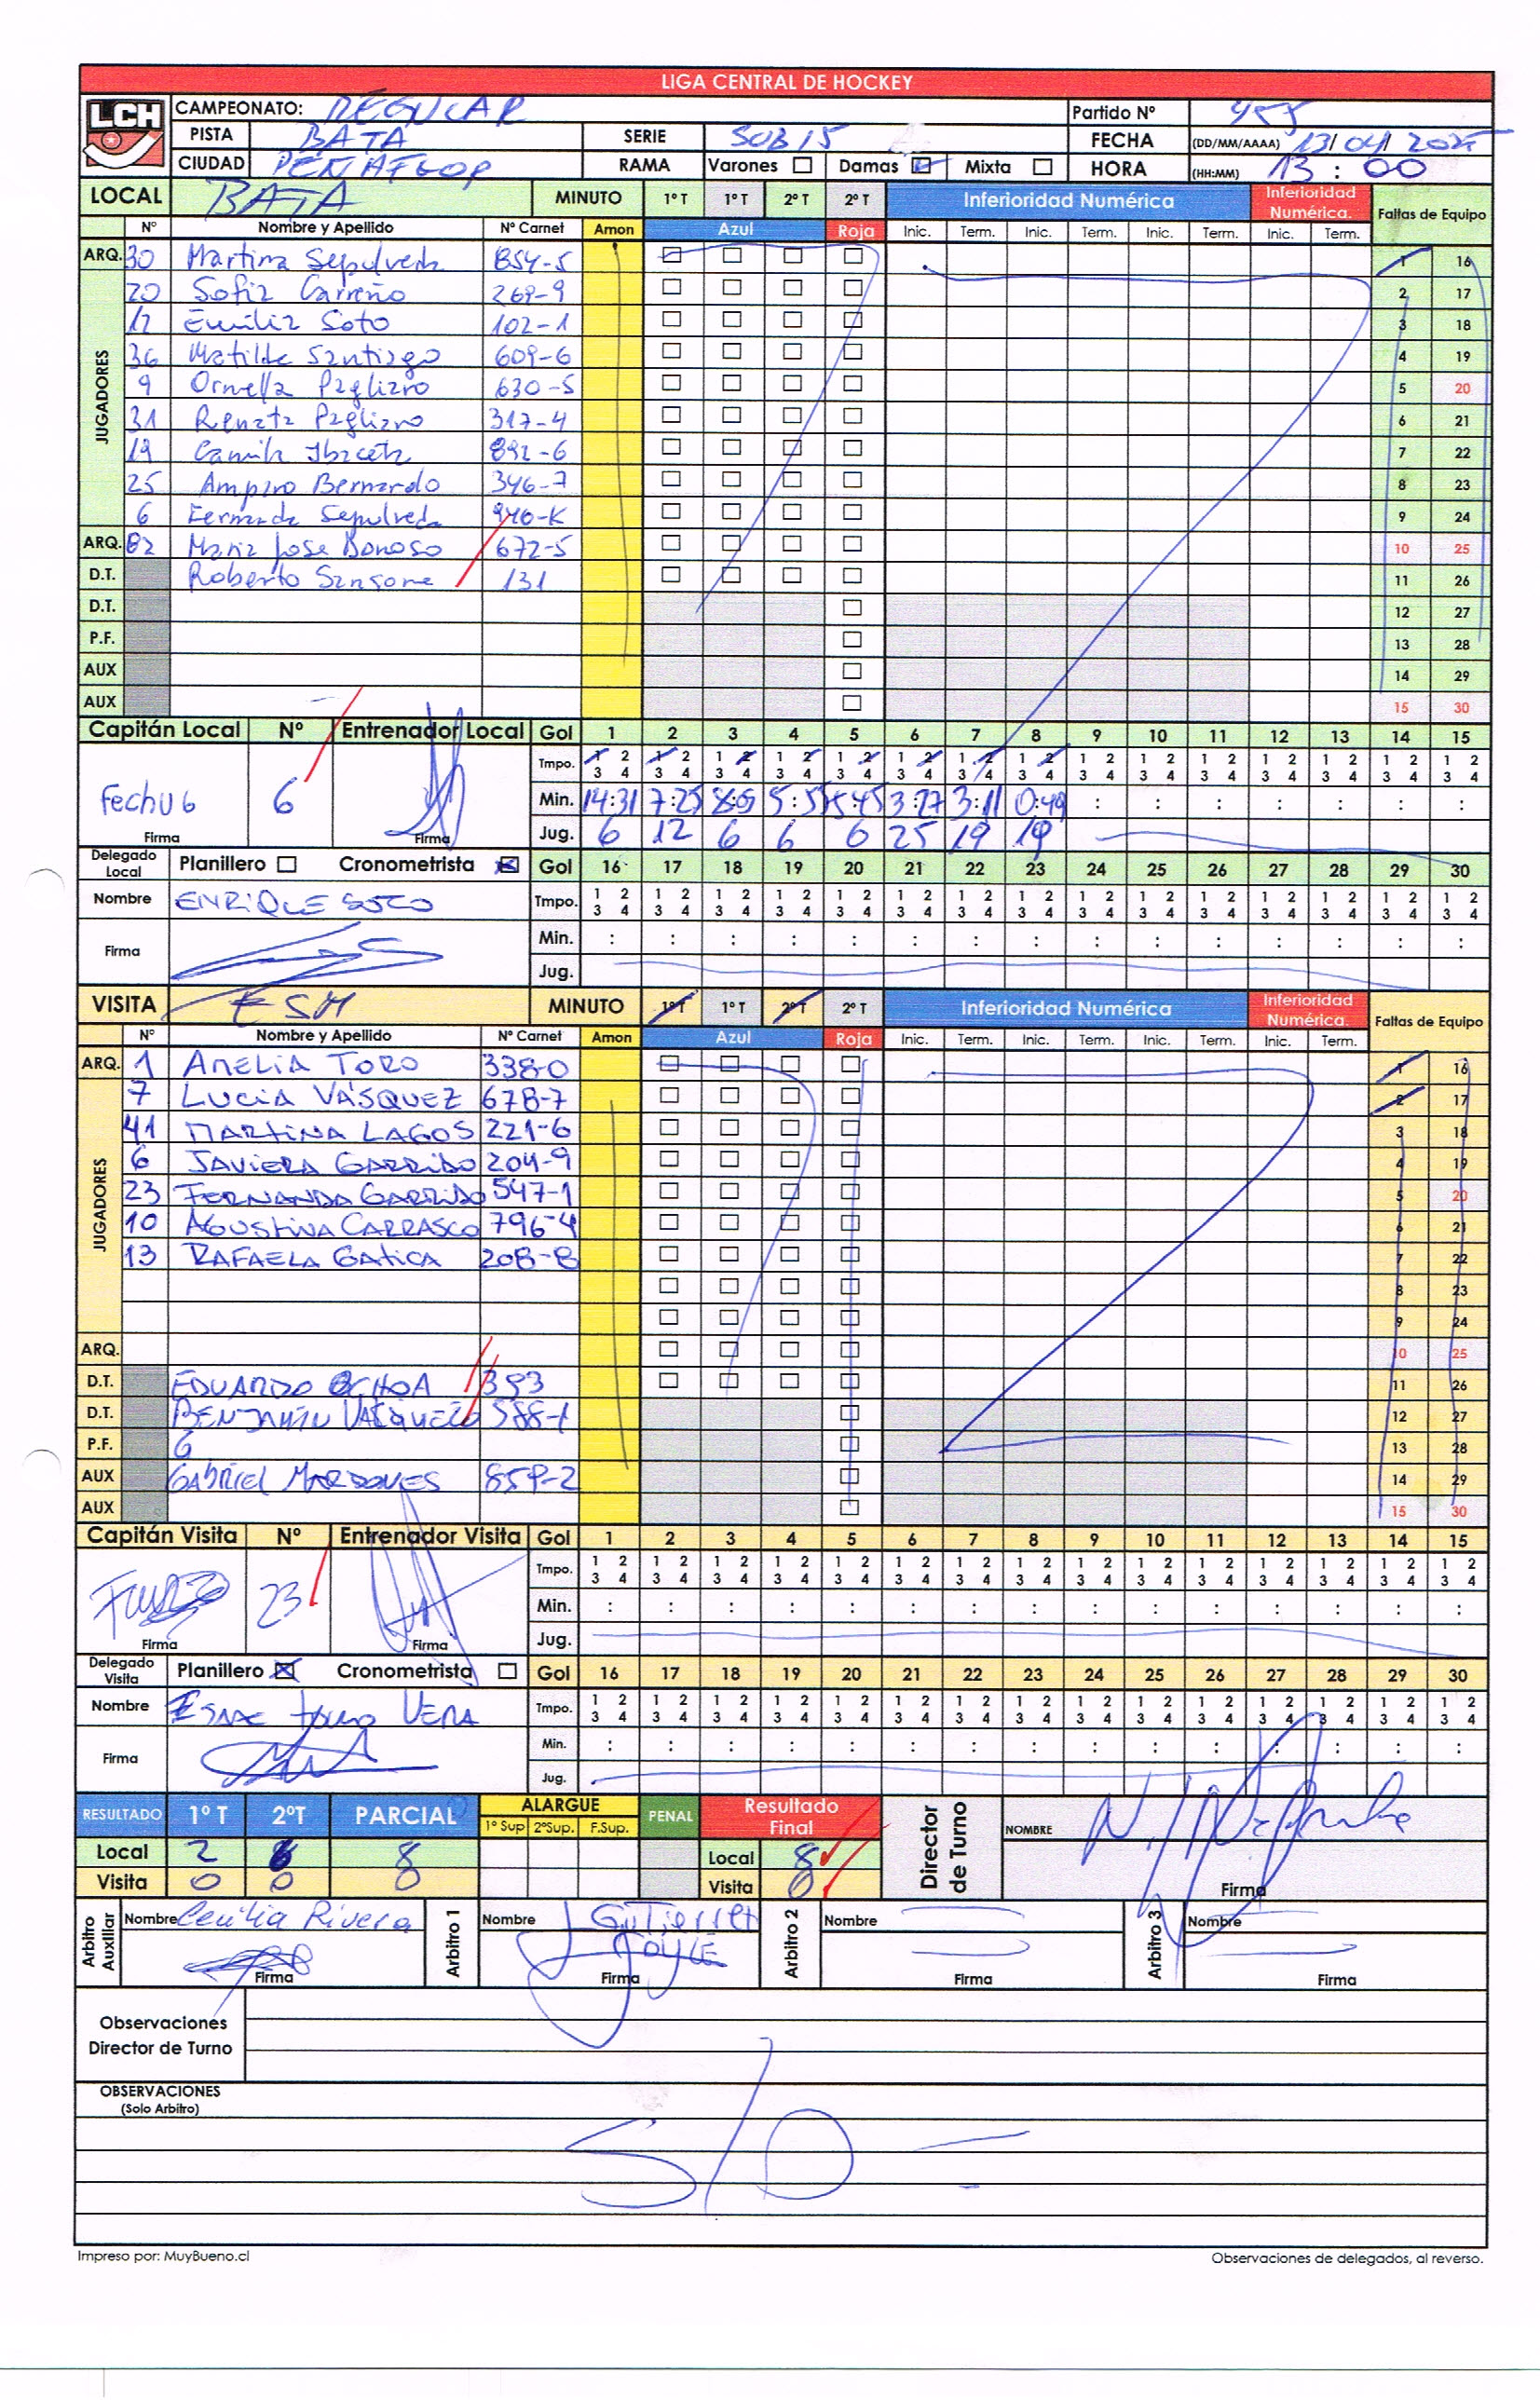 LIGA CENTRAL DE HOCKEY
LCH
CAMPEONATO: REGULAR Partido Nº
PISTA BATA SERIE SUB 15 FECHA (DD/MM/AAAA) 13/04/2025
CIUDAD PEÑAFLOR RAMA Varones Damas Mixta HORA (HH:MM) 13:00
LOCAL BATA MINUTO 1º T 1º T 2º T 2º T Inferioridad Numérica Inferioridad Numérica. Faltas de Equipo
Nº Nombre y Apellido Nº Carnet Amon Azul Roja Inic. Term. Inic. Term. Inic. Term. Inic. Term.
ARQ. 30 Martina Sepulveda 854-5 1 16
JUGADORES
20 Sofia Carreño 269-9 2 17
12 Emilia Soto 102-1 3 18
36 Matilde Santiago 609-6 4 19
9 Ornella Pagliaro 630-5 5 20
31 Renata Pagliaro 317-4 6 21
19 Camila Ibaceta 892-6 7 22
25 Amparo Bernardo 346-7 8 23
6 Fernanda Sepulveda 940-K 9 24
ARQ. 82 Maria Jose Donoso 672-5 10 25
D.T. Roberto Sansone 131 11 26
D.T. 12 27
P.F. 13 28
AUX 14 29
AUX 15 30
Capitán Local Nº Entrenador Local Gol 1 2 3 4 5 6 7 8 9 10 11 12 13 14 15
Tmpo. 1 2 3 4 1 2 3 4 1 2 3 4 1 2 3 4 1 2 3 4 1 2 3 4 1 2 3 4 1 2 3 4 1 2 3 4 1 2 3 4 1 2 3 4 1 2 3 4 1 2 3 4 1 2 3 4 1 2 3 4
Fechu 6 6 Min. 14:31 7:25 5:45 3:27 3:11 0:49 : : : : : : :
Firma Firma Jug. 6 12 6 6 6 25 19 19
Delegado Local Planillero Cronometrista Gol 16 17 18 19 20 21 22 23 24 25 26 27 28 29 30
Nombre ENRIQUE SOTO Tmpo. 1 2 3 4 1 2 3 4 1 2 3 4 1 2 3 4 1 2 3 4 1 2 3 4 1 2 3 4 1 2 3 4 1 2 3 4 1 2 3 4 1 2 3 4 1 2 3 4 1 2 3 4 1 2 3 4 1 2 3 4
Firma Min. : : : : : : : : : : : : : : :
Jug.
VISITA ESM MINUTO 1º T 1º T 2º T 2º T Inferioridad Numérica Inferioridad Numérica. Faltas de Equipo
Nº Nombre y Apellido Nº Carnet Amon Azul Roja Inic. Term. Inic. Term. Inic. Term. Inic. Term.
ARQ. 1 AMELIA TORO 338-0 1 16
JUGADORES
7 LUCIA VÁSQUEZ 678-7 2 17
41 MARTINA LAGOS 221-6 3 18
6 JAVIERA GARRIDO 204-9 4 19
23 FERNANDA GARRIDO 547-1 5 20
10 AGUSTINA CARRASCO 796-4 6 21
13 RAFAELA GATICA 208-8 7 22
8 23
9 24
ARQ. 10 25
D.T. EDUARDO OCHOA 393 11 26
D.T. BENJAMÍN VASQUEZ 588-1 12 27
P.F. G 13 28
AUX GABRIEL MARDONES 859-2 14 29
AUX 15 30
Capitán Visita Nº Entrenador Visita Gol 1 2 3 4 5 6 7 8 9 10 11 12 13 14 15
Tmpo. 1 2 3 4 1 2 3 4 1 2 3 4 1 2 3 4 1 2 3 4 1 2 3 4 1 2 3 4 1 2 3 4 1 2 3 4 1 2 3 4 1 2 3 4 1 2 3 4 1 2 3 4 1 2 3 4 1 2 3 4
23 Min. : : : : : : : : : : : : : : :
Firma Firma Jug.
Delegado Visita Planillero Cronometrista Gol 16 17 18 19 20 21 22 23 24 25 26 27 28 29 30
Nombre VERA Tmpo. 1 2 3 4 1 2 3 4 1 2 3 4 1 2 3 4 1 2 3 4 1 2 3 4 1 2 3 4 1 2 3 4 1 2 3 4 1 2 3 4 1 2 3 4 1 2 3 4 1 2 3 4 1 2 3 4 1 2 3 4
Firma Min. : : : : : : : : : : : : : : :
Jug.
RESULTADO 1º T 2ºT PARCIAL ALARGUE PENAL Resultado Final Director de Turno NOMBRE
1º Sup 2ºSup. F.Sup.
Local 2 8 Local 8
Visita 0 0 0 Visita 0 Firma
Arbitro Auxiliar Nombre Cecilia Rivera Arbitro 1 Nombre J Gutierrez Arbitro 2 Nombre Arbitro 3 Nombre
JOYCE
Firma Firma Firma Firma
Observaciones
Director de Turno
OBSERVACIONES
(Solo Arbitro)
S/O -
Impreso por: MuyBueno.cl Observaciones de delegados, al reverso.